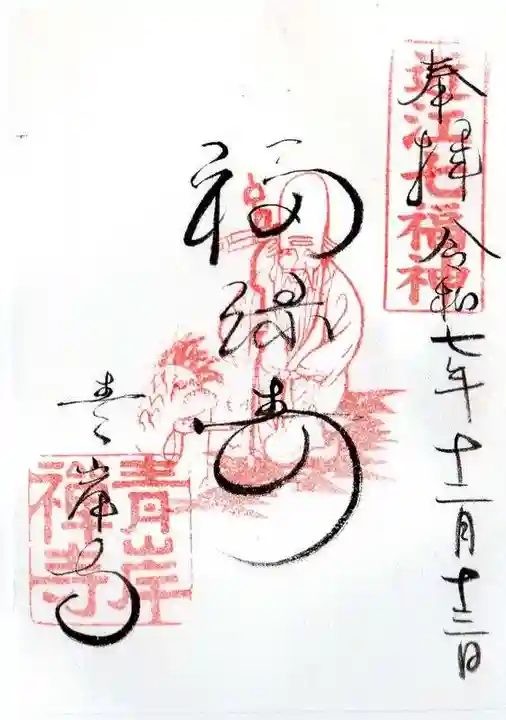 奉拝 令和七年十二月十三日
近江七福神
福禄寿
青岸寺
青岸禅寺